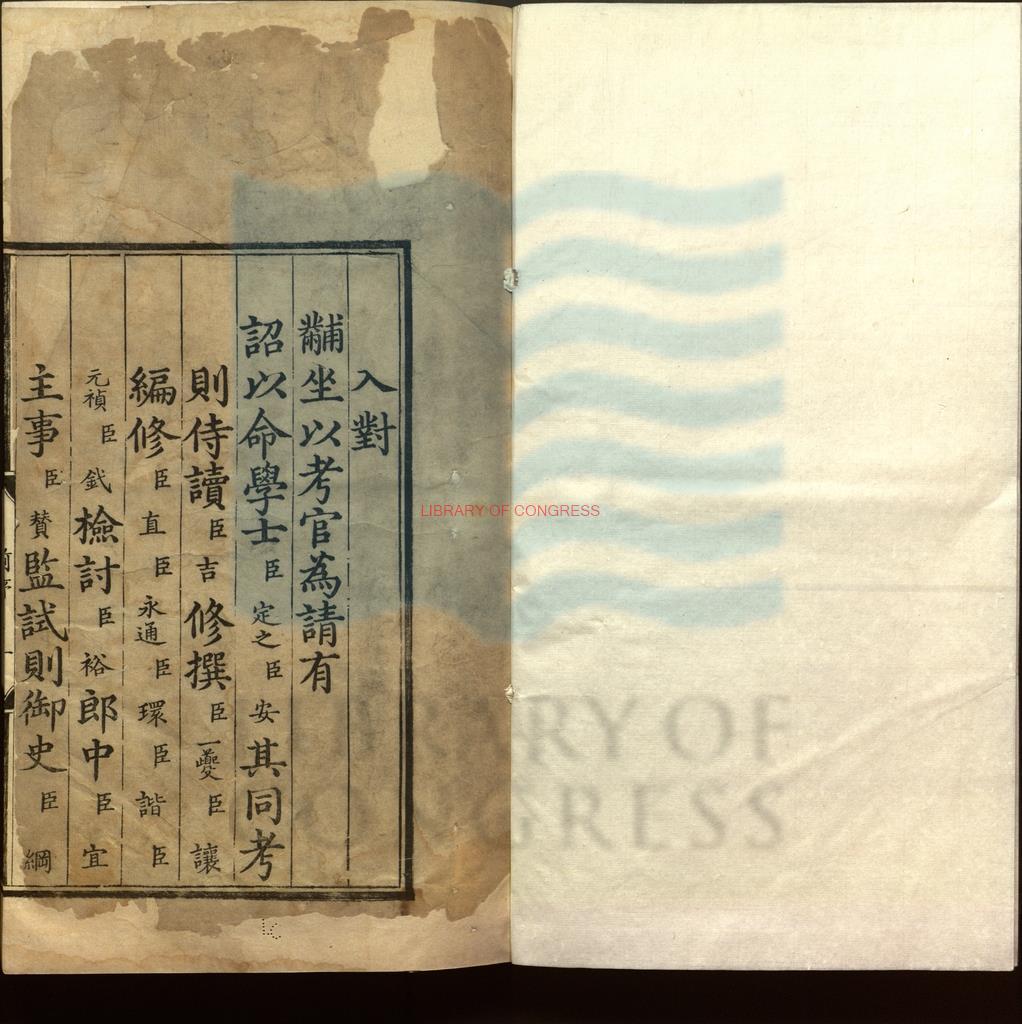 入對
黼坐以考官為請有
詔以命學士臣定之臣安其同考
則侍讀臣吉修撰臣一夔臣讓
編修臣直臣永通臣環臣諧臣
元禎臣鉞檢討臣裕郎中臣宜
主事臣贊監試則御史臣綱
LIBRARY OF CONGRESS
LIBRARY OF
CONGRESS